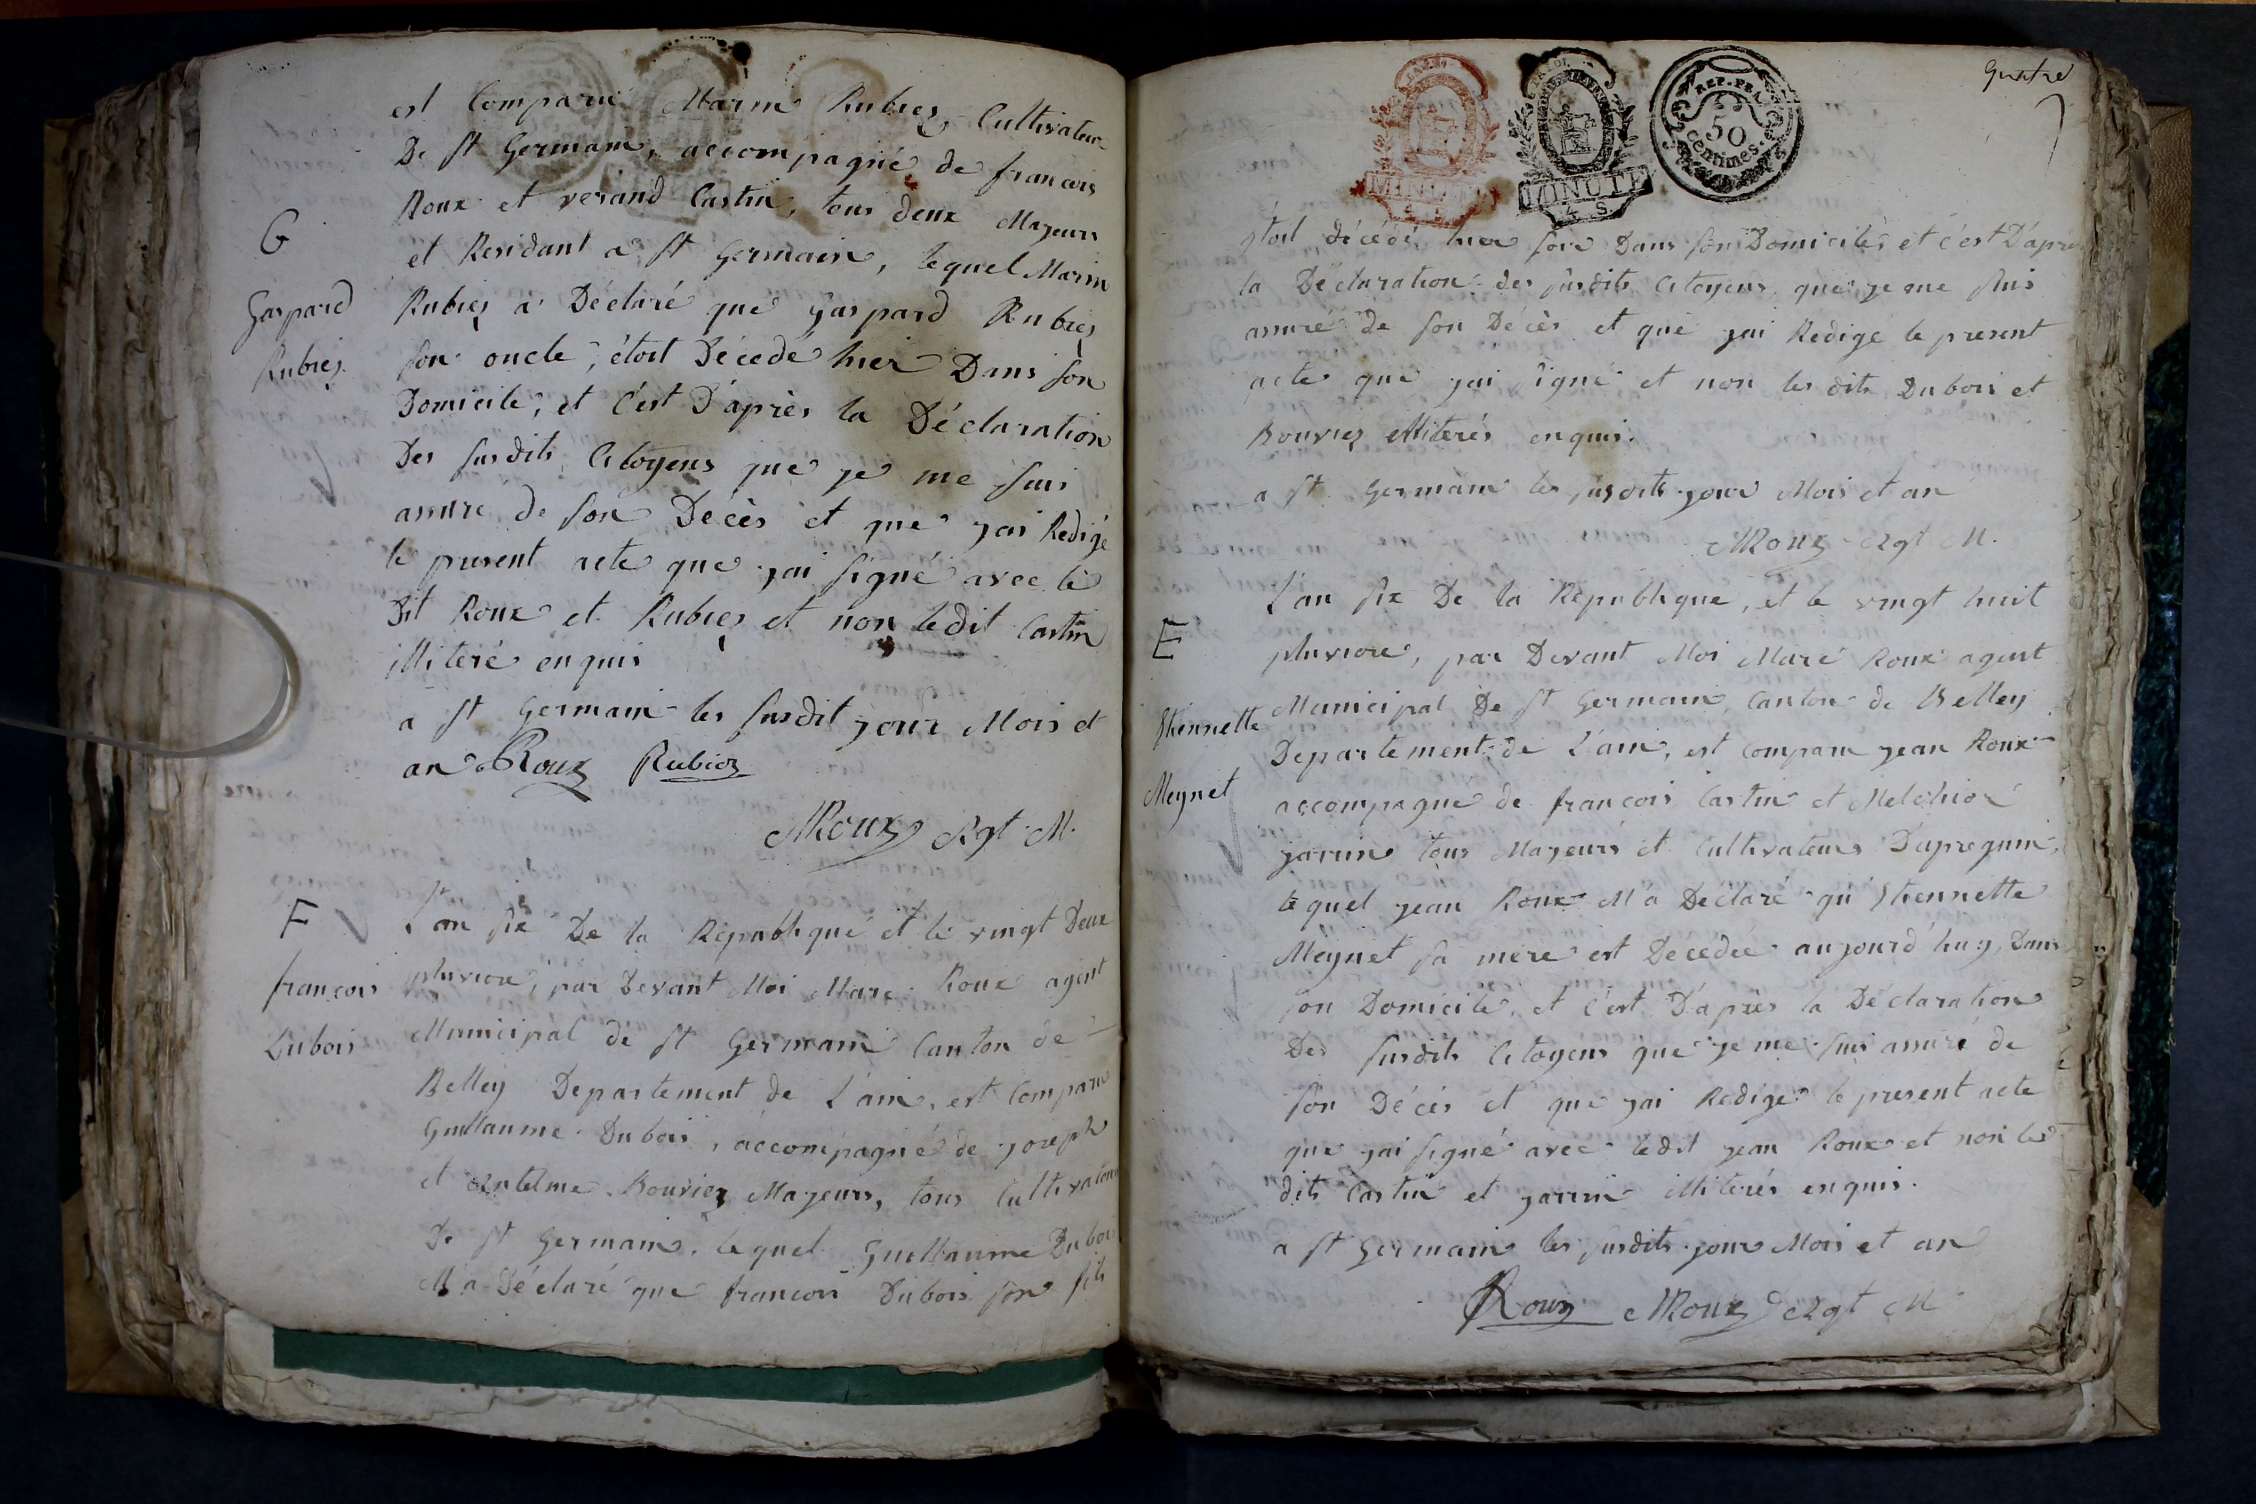 est Comparu Marin Rubiez, Cultivateur
De St Germain, accompagné de francois
Roux et verand Castin, tous deux Mayeurs
et Residant a St Germain, lequel Marin
G
Gaspard
Rubiez
Rubiez a Déclaré que Gaspard Rubiez
son oncle, étoit Décedé hier Dans son
Domicile, et C'est D'après la Déclaration
Des susdits Citoyens que je me suis
assuré de son Décès et que j'ai Redigé
le present acte que j'ai signé avec le
Dit Roux et Rubiez et non ledit Castin
illiteré enquis
a St Germain les susdit jour Mois et
an Roux Rubiez
MRoux Agt M.
F
françois
Dubois
L'an six De la République et le vingt Deux
pluviose, par Devant Moi Marc Roux agent
Municipal de St Germain Canton de
Belley Departement de L'ain, est Comparu
Guillaume Dubois, accompagné de joseph
et antelme Bouviez Mayeurs, tous Cultivateurs
De St Germain, lequel Guillaume Dubois
M'a Déclaré que francois Dubois son fils
quatre
MINUTE
4 S
MINUTE
4 S
REP. FRA.
50
centimes.
étoit décédé hier soir Dans son Domicile et c'est D'après
la Déclaration des susdits Citoyens que je me suis
assuré de son Décès et que j'ai Redigé le present
acte que j'ai signé et non les dits Dubois et
Bouviez illiterés enquis.
a St Germain les susdits jour Mois et an
MRoux Agt M.
E
Etiennette
Meynet
L'an six De la République, et le vingt huit
pluviose, par Devant Moi Marc Roux agent
Municipal De St Germain, Canton de Belley
Departement de L'ain, est comparu jean Roux
accompagné de francois Castin et Melchior
jarrin tous Mayeurs et Cultivateurs D'apregnin,
lequel jean Roux M'a Déclaré qu'Etiennette
Meynet sa mere est Décedée aujourd'huy, Dans
son Domicile, et C'est D'après la Déclaration
Des susdits Citoyens que je me suis assuré de
son Décès et que j'ai Redigé le present acte
que j'ai signé avec ledit jean Roux et non les
dits Castin et jarrin illiterés enquis.
a St Germain les susdits jour Mois et an
Roux MRoux Agt M